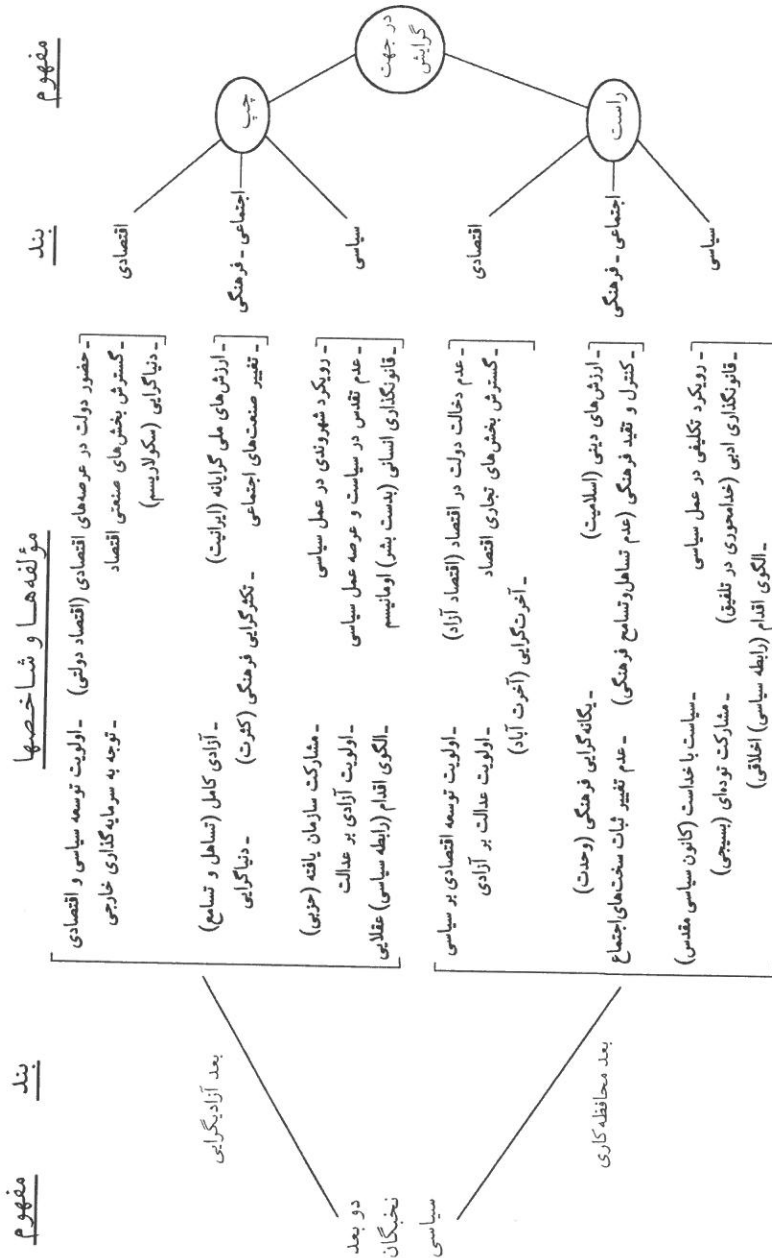 مفهوم
بند
مؤلفه‌ها و شاخصها
بند
مفهوم
گرایش
در جهت
چپ
راست
اقتصادی
اجتماعی - فرهنگی
سیاسی
اقتصادی
اجتماعی - فرهنگی
سیاسی
- حضور دولت در عرصه‌های اقتصادی (اقتصاد دولتی)
- گسترش بخش‌های صنعتی اقتصاد
- دنیاگرایی (سکولاریسم)
- اولویت توسعه سیاسی و اقتصادی
- توجه به سرمایه‌گذاری خارجی
- ارزش‌های ملی گرایانه (ایرانیت)
- تغییر صنعت‌های اجتماعی
- تکثرگرایی فرهنگی (کثرت)
- آزادی کامل (تساهل و تسامع)
- دنیاگرایی
- رویکرد شهروندی در عمل سیاسی
- عدم تقدس در سیاست و عرصه عمل سیاسی
- قانونگذاری انسانی (بدست بشر) اومانیسم
- مشارکت سازمان یافته (حزبی)
- اولویت آزادی بر عدالت
- الگوی اقدام (رابطه سیاسی) عقلایی
- عدم دخالت دولت در اقتصاد (اقتصاد آزاد)
- گسترش بخش‌های تجاری اقتصاد
- آخرت‌گرایی (آخرت آباد)
- اولویت توسعه اقتصادی بر سیاسی
- اولویت عدالت بر آزادی
- ارزش‌های دینی (اسلامیت)
- کنترل و تقید فرهنگی (عدم تساهل‌وتسامع فرهنگی)
- یگانه‌گرایی فرهنگی (وحدت)
- عدم تغییر ثبات سخت‌های‌اجتماع
- رویکرد تکلیفی در عمل سیاسی
- قانونگذاری ادبی (خدامحوری در تلفیق)
- الگوی اقدام (رابطه سیاسی) اخلاقی)
- سیاست با خداست (کانون سیاسی مقدس)
- مشارکت توده‌ای (بسیجی)
بعد آزادیگرایی
بعد محافظه‌کاری
دو بعد
نخبگان
سیاسی